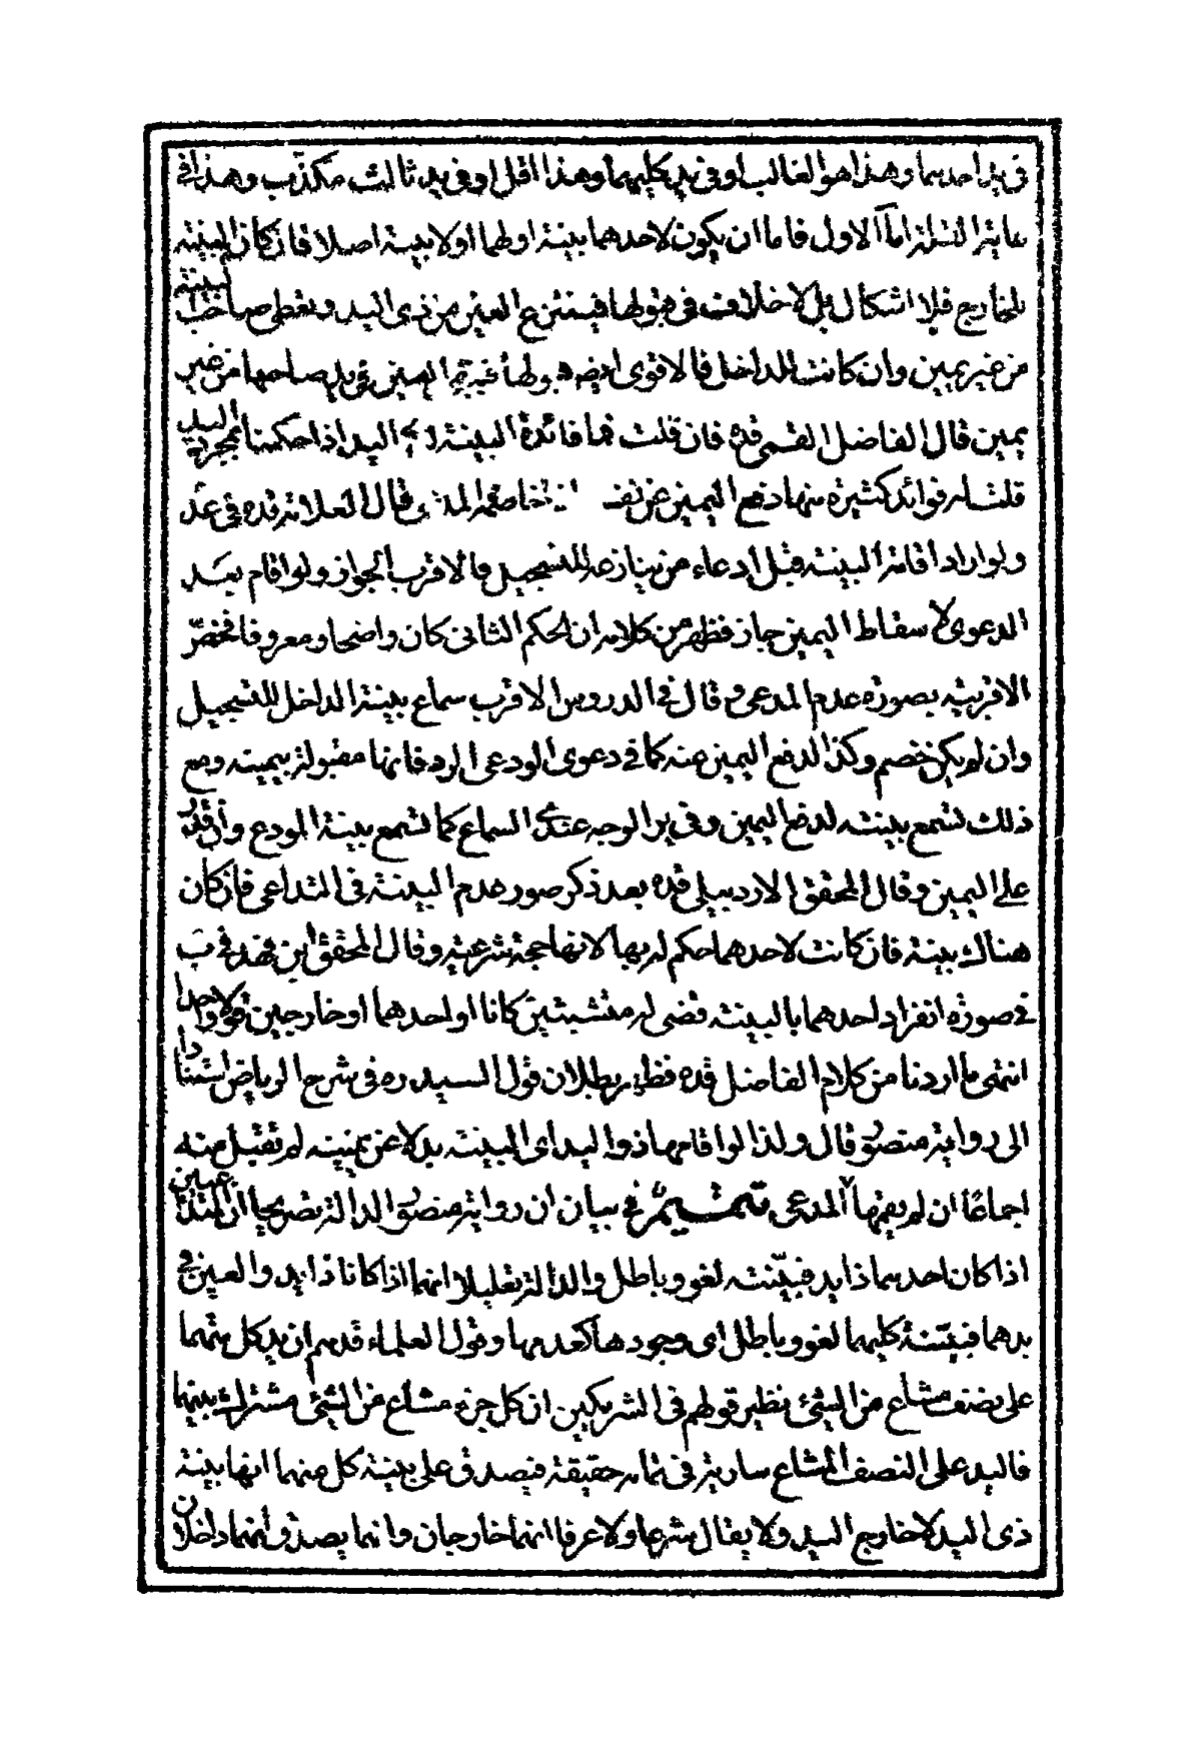 فى يد احدهما وهذا هو الغالب او فى يد كليهما وهذا اقل او فى يد ثالث مكذّب وهذا فى
غاية القلة اما الاول فاما ان يكون لاحدهما بينة او لهما اولا بينة اصلا فان كان البينة
للخارج فلا اشكال بل لا خلاف فى قبولها فينتزع العين من ذى اليد ويعطى صاحب البينة
من غير يمين وان كانت للداخل فالاقوى ايضا قبولها فيقر العين فى يد صاحبها من غير
يمين قال الفاضل القمى قده فان قلت فما فائدة البينة لذى اليد اذا حكمنا بمجرد اليد
قلت له فوائد كثيرة منها دفع اليمين عن نفسه خاصمه المدعى قال العلامة قده فى عد
ولو اراد اقامة البينة قبل ادعاء من ينازعه للتسجيل فالاقرب الجواز ولو اقام بعد
الدعوى لاسقاط اليمين جاز فظهر من كلامه ان الحكم الثانى كان واضحا ومعروفا فخصّ
الاقربية بصورة عدم المدعى وقال فى الدروس الاقرب سماع بينة الداخل للتسجيل
وان لم يكن خصم وكذا لدفع اليمين عنه كما فى دعوى الودعى الرد فانها مقبولة بيمينه ومع
ذلك تسمع بينته لدفع اليمين وفى ير الوجه عندى السماع كما تسمع بينة المودع وان قدر
على اليمين وقال المحقق الاردبيلى قده بعد ذكر صور عدم البينة فى التداعى فان كان
هناك بينة فان كانت لاحدهما حكم له بها لانها حجة شرعية وقال المحقق ابن فهد فى ب
فى صورة انفراد احدهما بالبينة قضى له متشبثين كانا او احدهما او خارجين قولا واحدا
انتهى ما اردنا من كلام الفاضل قده فظهر بطلان قول السيد ره فى شرح الرياض استنادا
الى رواية منصور قال ولذا لو اقامها ذو اليد اى البينة بدلا عن يمينه لم تقبل منه
اجماعا ان لم يقمها المدعى تتميم فى بيان ان رواية منصور الدالة تصريحا ان المتداعيين
اذا كان احدهما ذا يد فبيّنته لغو وباطل والدالة تعليلا انهما اذا كانا ذا يد والعين فى
يدهما فبيّنة كليهما لغو وباطل اى وجودها كعدمها وقول العلماء قدهم ان يد كل منهما
على نصف مشاع من الشئ نظير قولهم فى الشريكين ان كل جزء مشاع من الشئ مشترك بينهما
فاليد على النصف المشاع سارية فى تمامه حقيقة فيصدق على بينة كل منهما انها بينة
ذى اليد لا خارج اليد ولا يقال شرعا ولا عرفا انهما خارجان وانما يصدق انهما داخلان